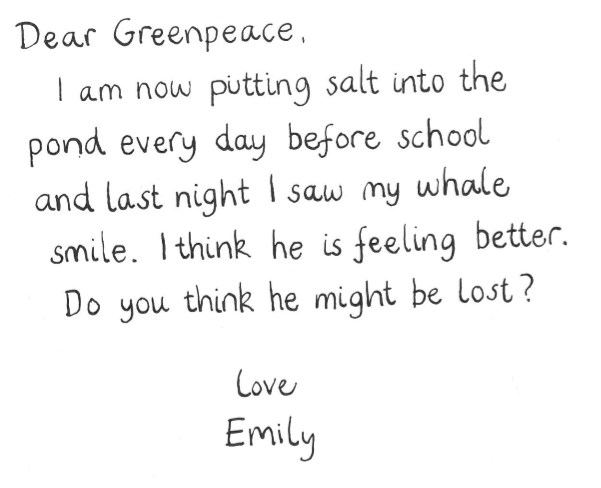 Dear Greenpeace,
I am now putting salt into the
pond every day before school
and last night I saw my whale
smile. I think he is feeling better.
Do you think he might be lost?
Love
Emily